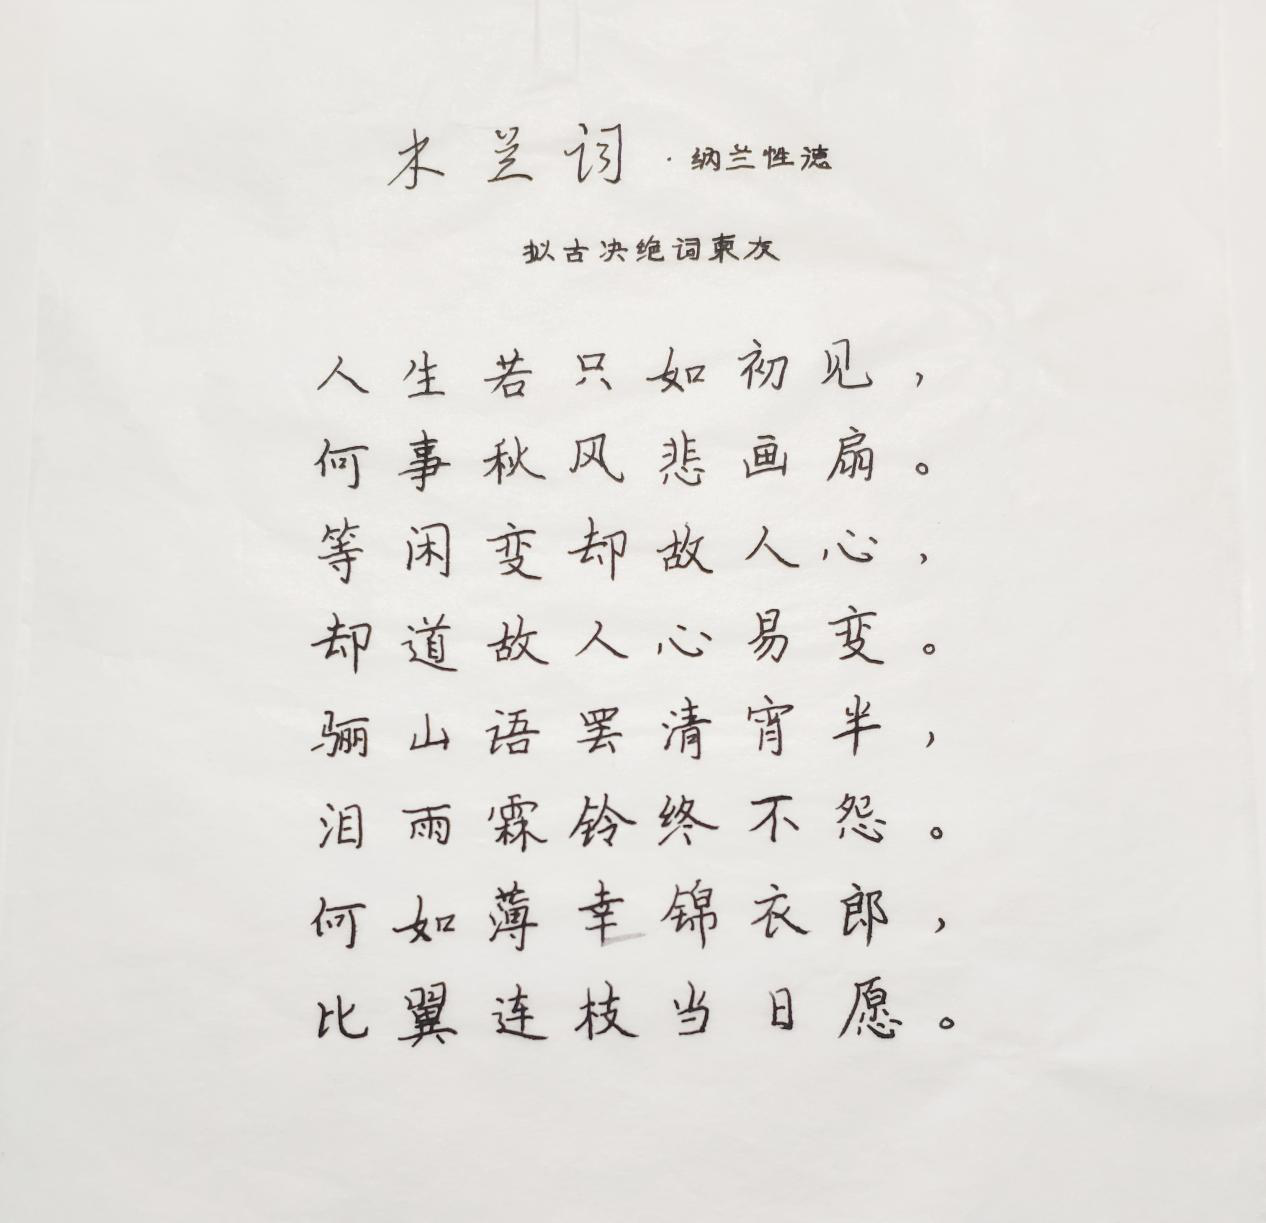 木兰词·纳兰性德
拟古决绝词柬友
人生若只如初见，
何事秋风悲画扇。
等闲变却故人心，
却道故人心易变。
骊山语罢清宵半，
泪雨霖铃终不怨。
何如薄幸锦衣郎，
比翼连枝当日愿。